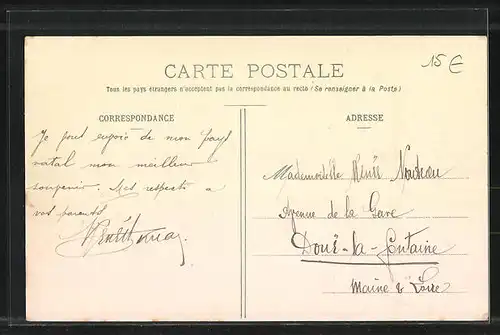 15 €
CARTE POSTALE
Tous les pays étrangers n'acceptent pas la correspondance au recto (Se renseigner à la Poste)
CORRESPONDANCE
ADRESSE
Je de mon pays
natal mon meilleur
souvenir. Mes respects a
vos parents
Mademoiselle
Avenue de la Gare
Doué-la-Fontaine
Maine & Loire